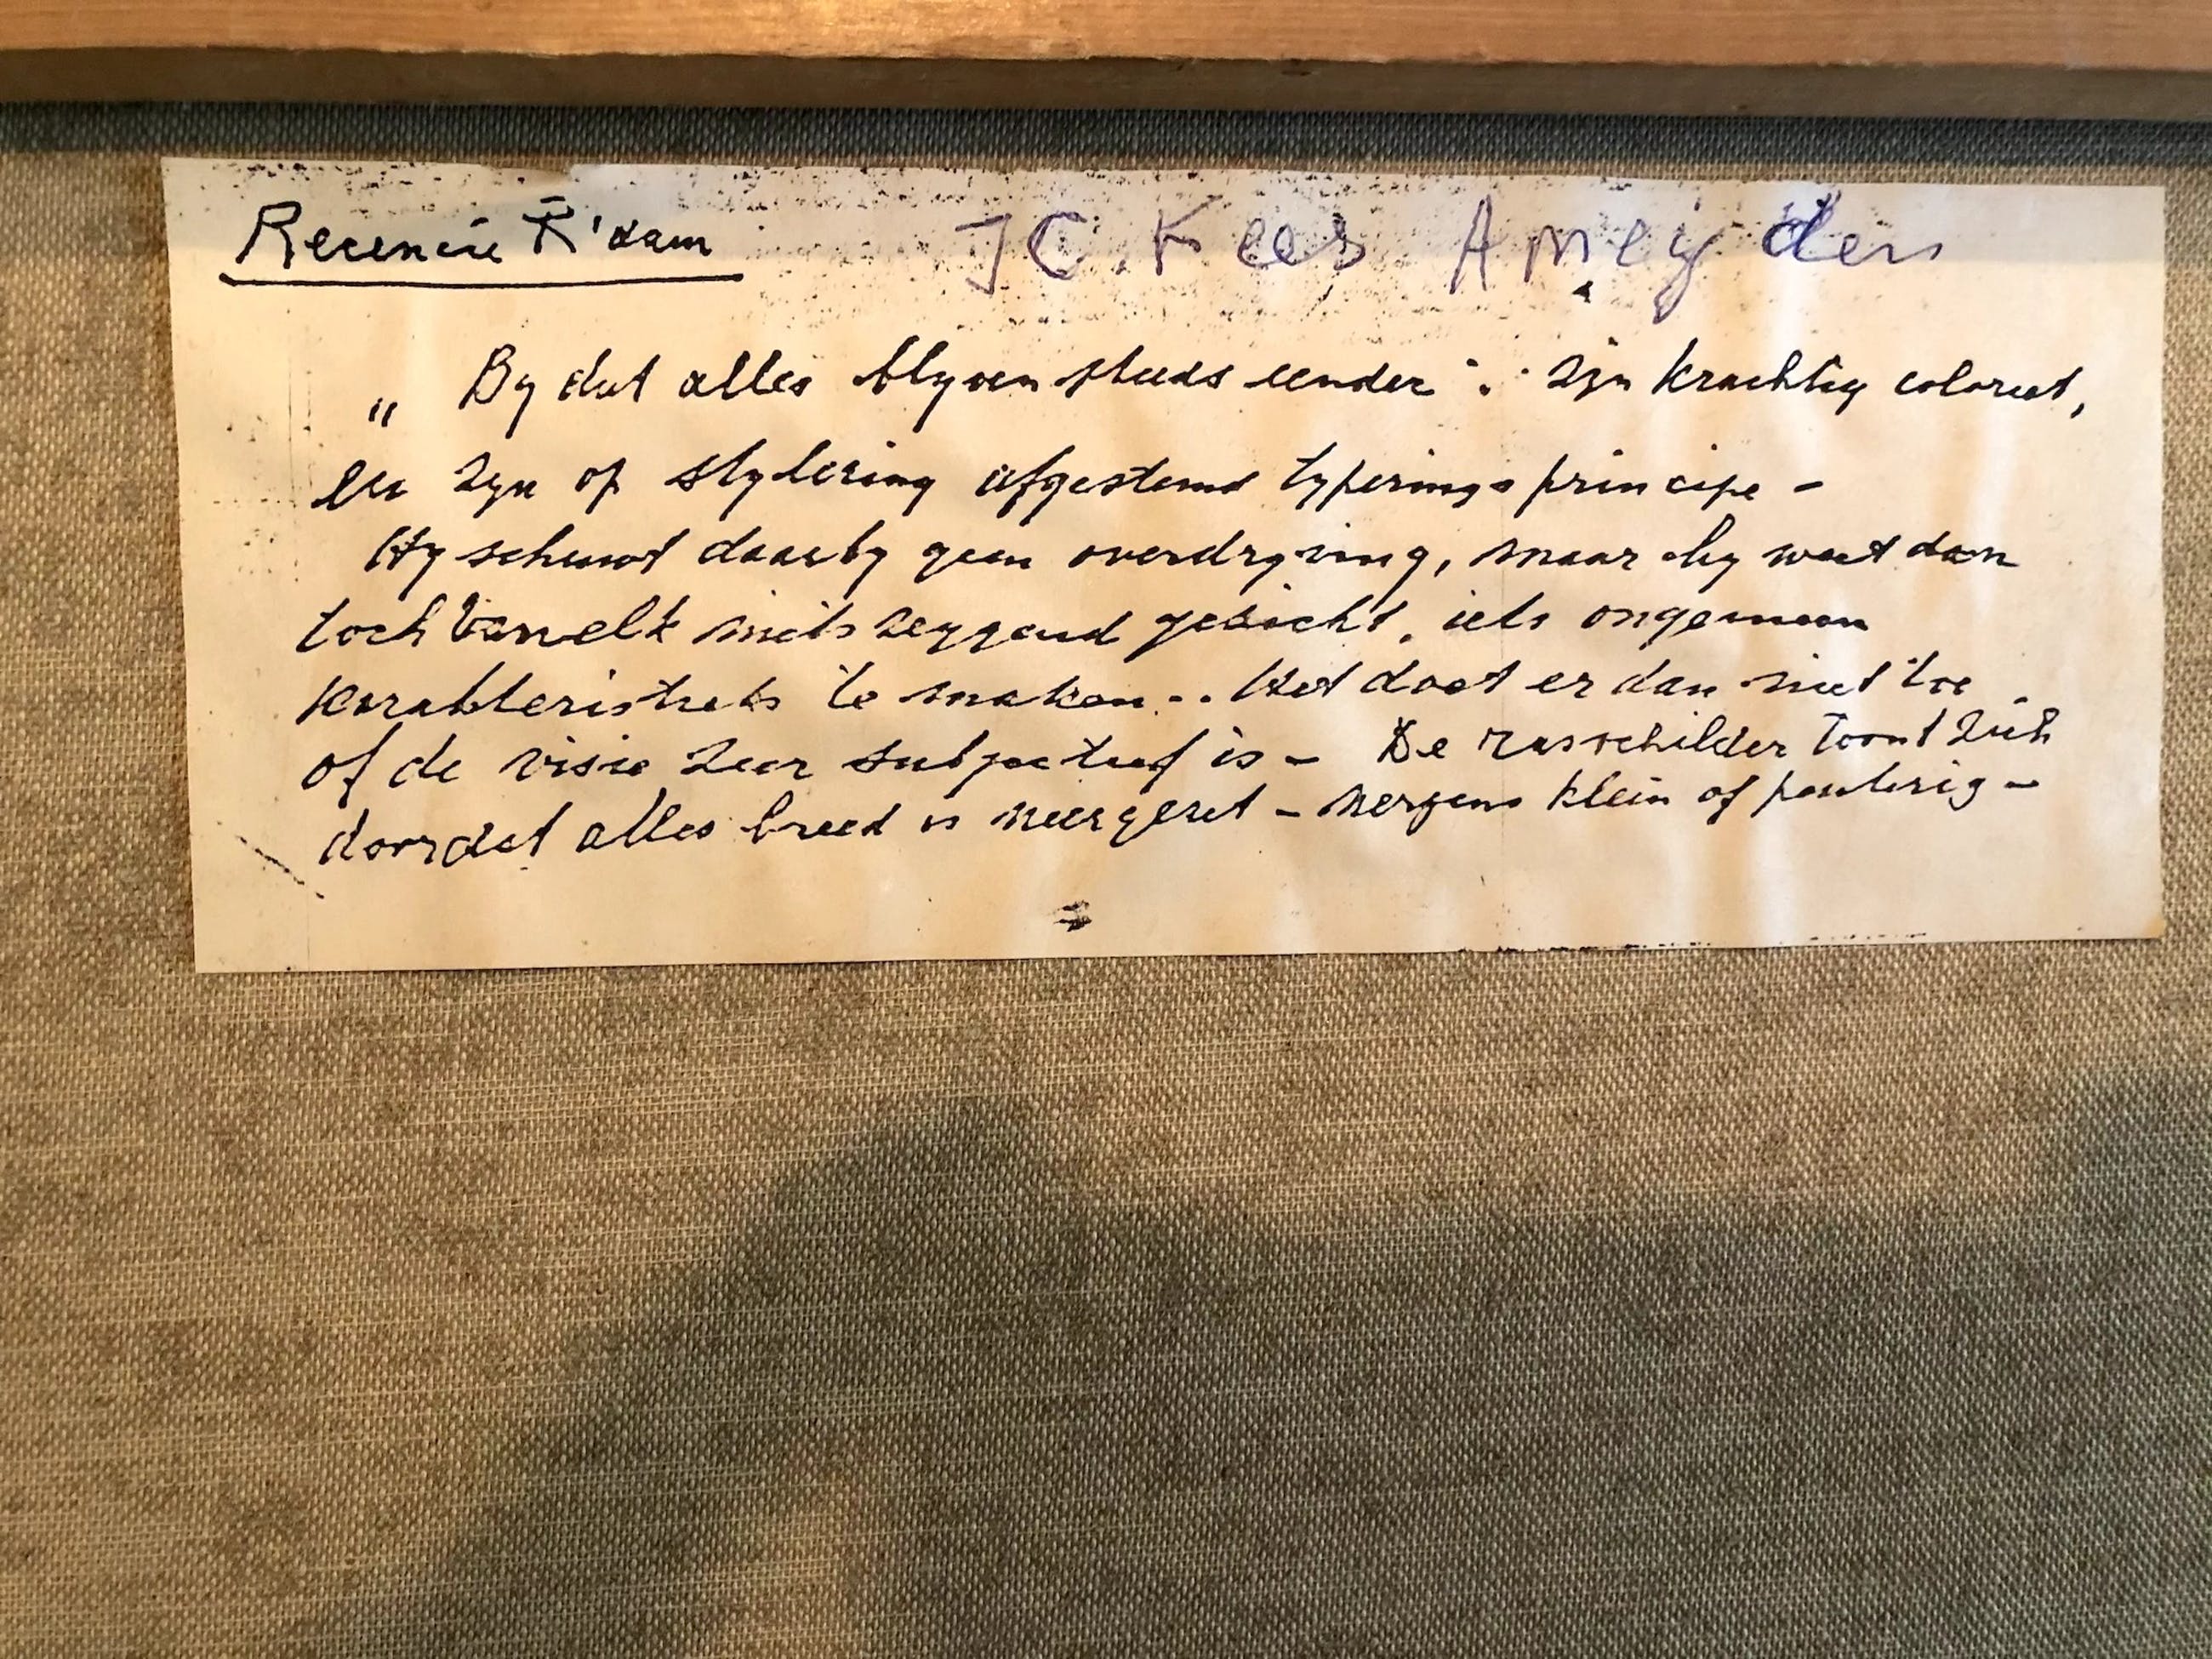 Recensie R'dam JC. Kees Ameijden
„ By dit alles blyven steeds eender : zyn krachtig coloriet,
en zyn op stylering afgestemd typeringsprincipe -
Hy schuwt daarby geen overdryving, maar hy weet dan
toch van elk nietszeggend gezicht, iets ongemeen
karakteristieks te maken.. Het doet er dan niet toe
of de visie zeer subjectief is - De rasschilder toont zich
doordat alles breed is neergezet - nergens klein of peuterig -